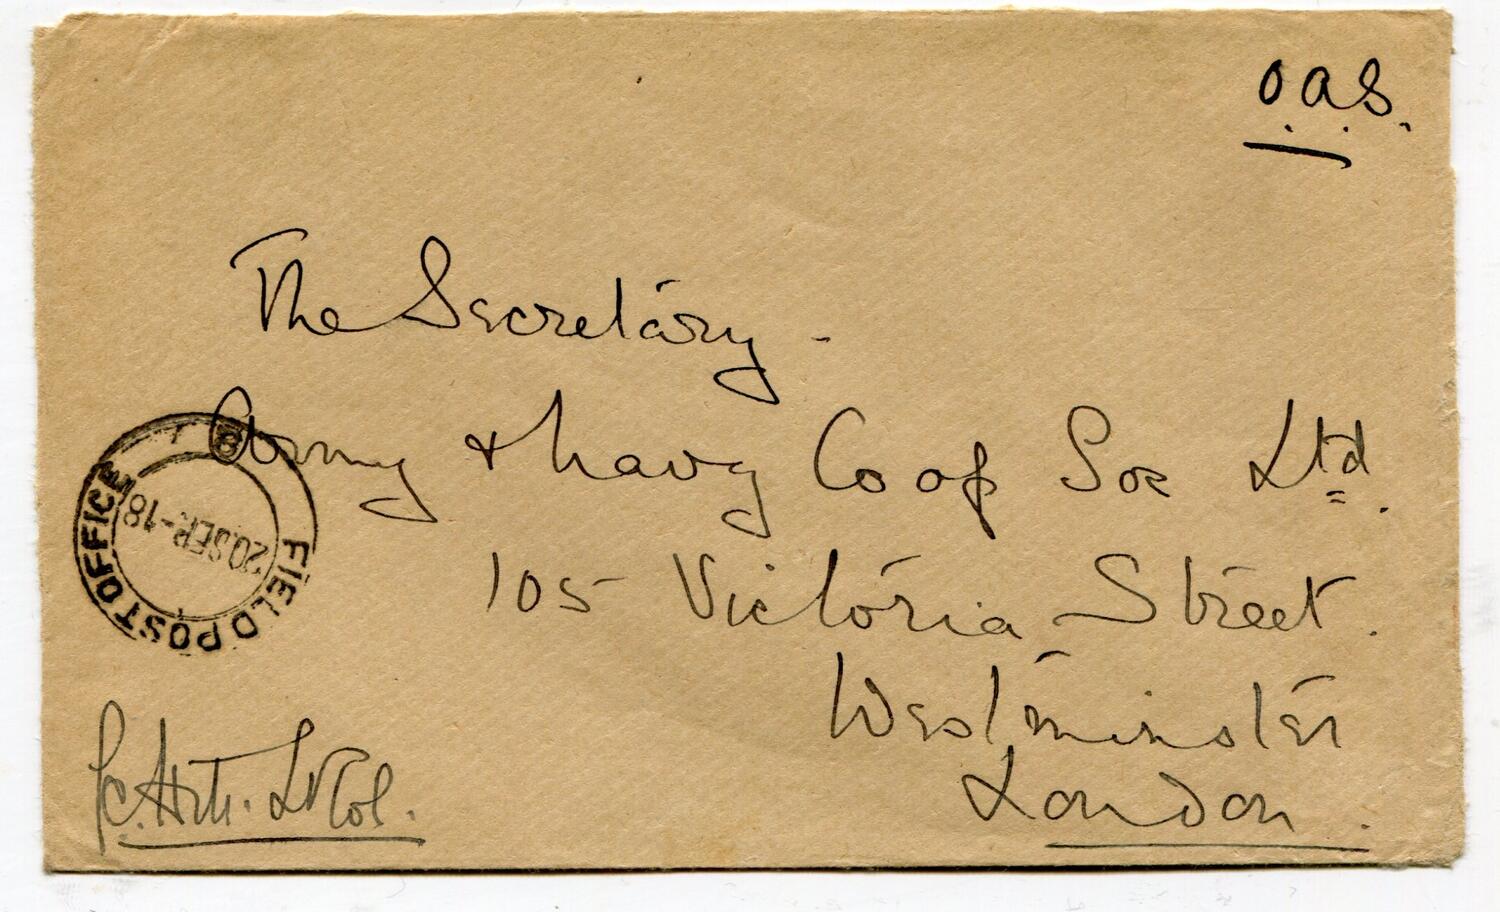 O.A.S.
The Secretary -
Army & Navy Coop Soc Ltd.
105 Victoria Street.
Westminster
London.
FIELD POST OFFICE
20 SEP -18
Lt Col.